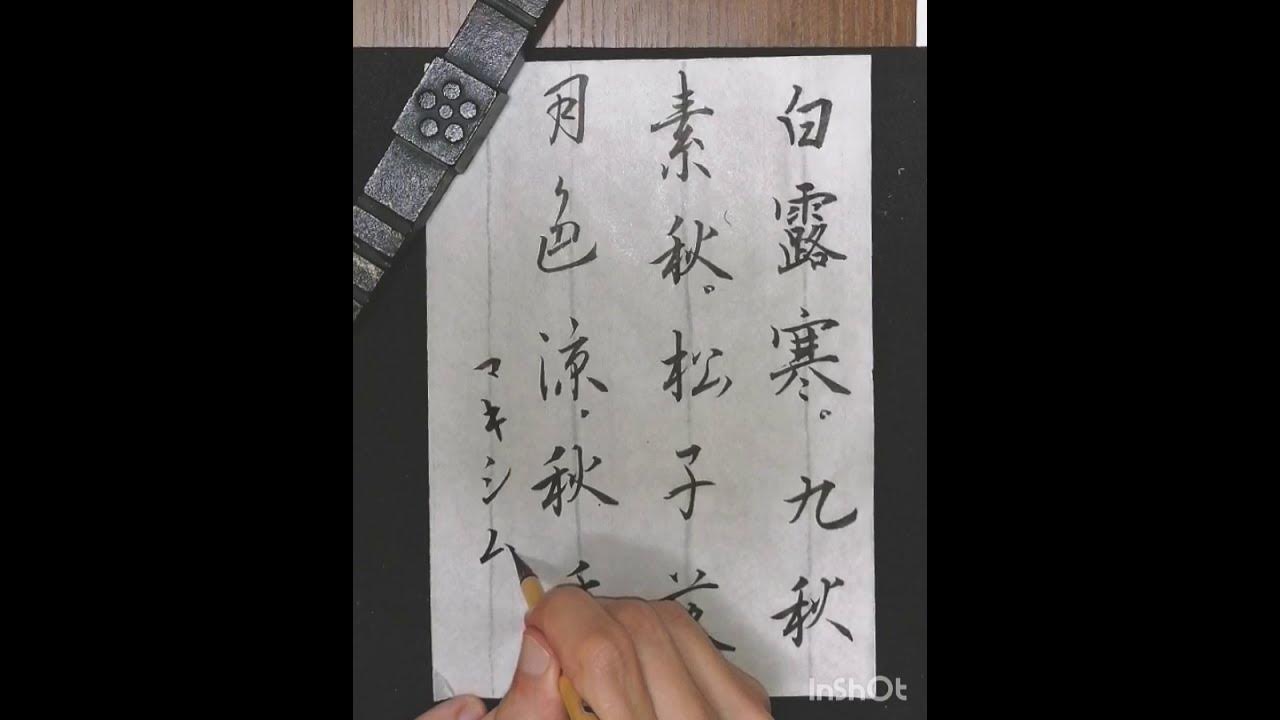 白露寒。九秋
素秋。松子
月色涼。秋
マキシム
InShOt